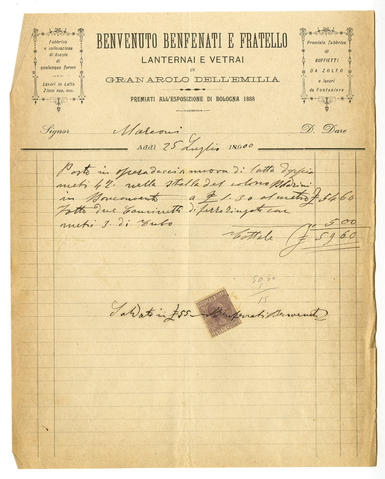 Fabbrica
e collocazione
di Docele
di
qualunque forma
Lavori in Latta
Zinco ecc. ecc.
BENVENUTO BENFENATI E FRATELLO
LANTERNAI E VETRAI
IN
GRANAROLO DELL'EMILIA
PREMIATI ALL'ESPOSIZIONE DI BOLOGNA 1888
Premiata fabbrica
di
SOFFIETTI
DA ZOLFO
e lavori
da Fontaniere
Signor Marconi D. Dare
Addì 25 Luglio 1900
Posto in opera nuova di latta doppia
metri 42. nella stalla del colono
in a £ 1.30 al metro £ 54.60
fatto due di ferro zingato con
metri 3 di tubo. 5.00
Totale £ 59.60
50.50
15
Saldato in £ 55 Benfenati Benvenuto